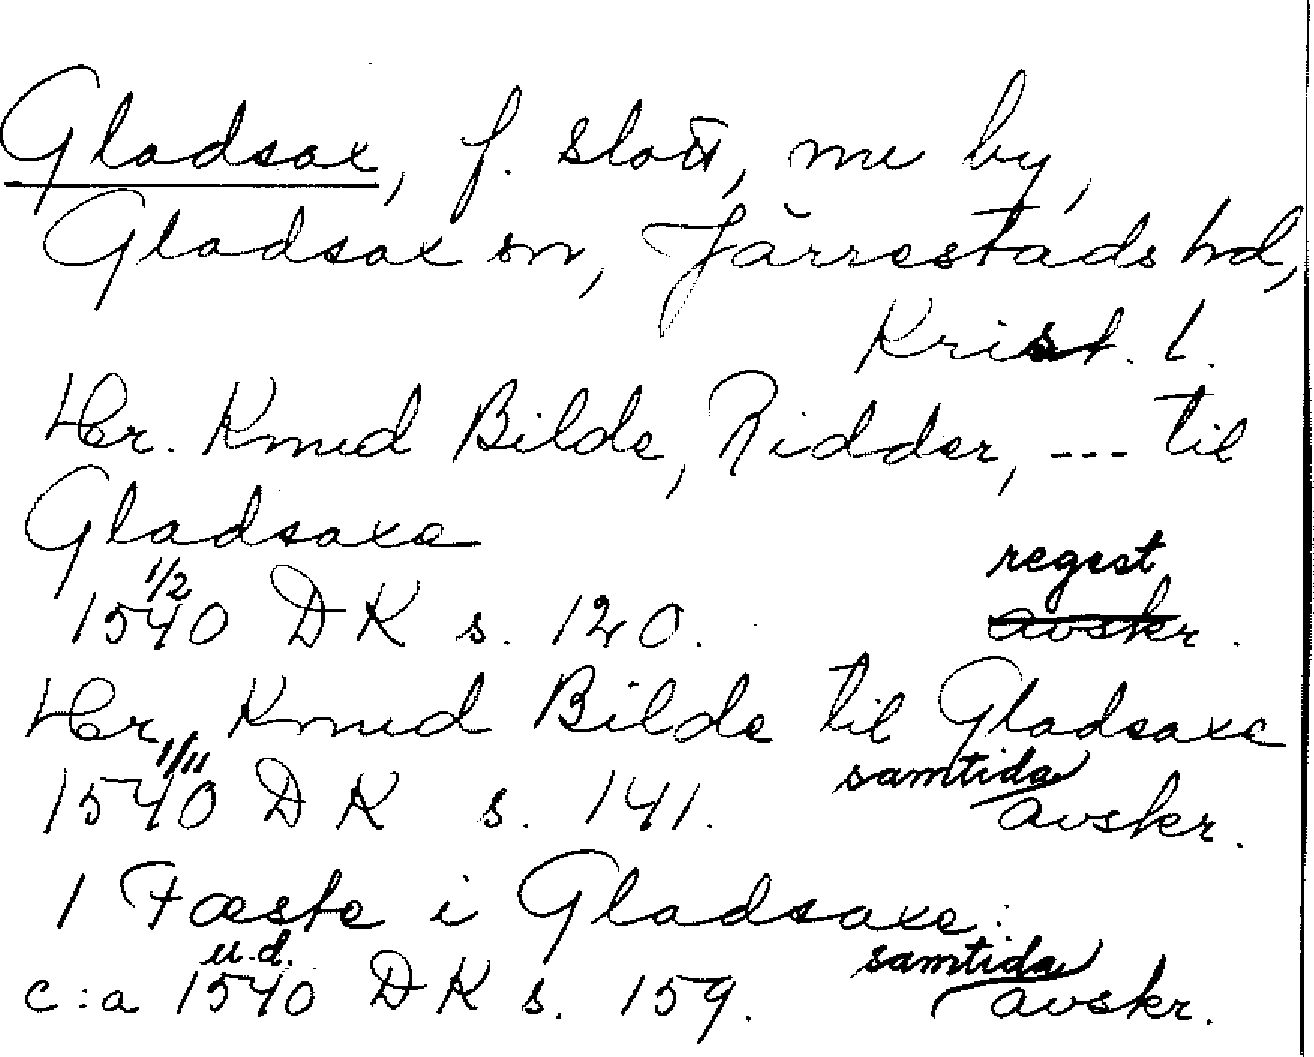 Gladsax, f. slott, nu by,
Gladsax sn, Järrestads hd,
Krist. l.
Her. Knud Bilde, Ridder, --- til
Gladsaxe
1/2 regest
1540 DK s. 120. avskr.
Her Knud Bilde til Gladsaxe
1/11 samtida
1540 DK s. 141. avskr.
1 Fæste i Gladsaxe:
u.d. samtida
c:a 1540 DK s. 159. avskr.